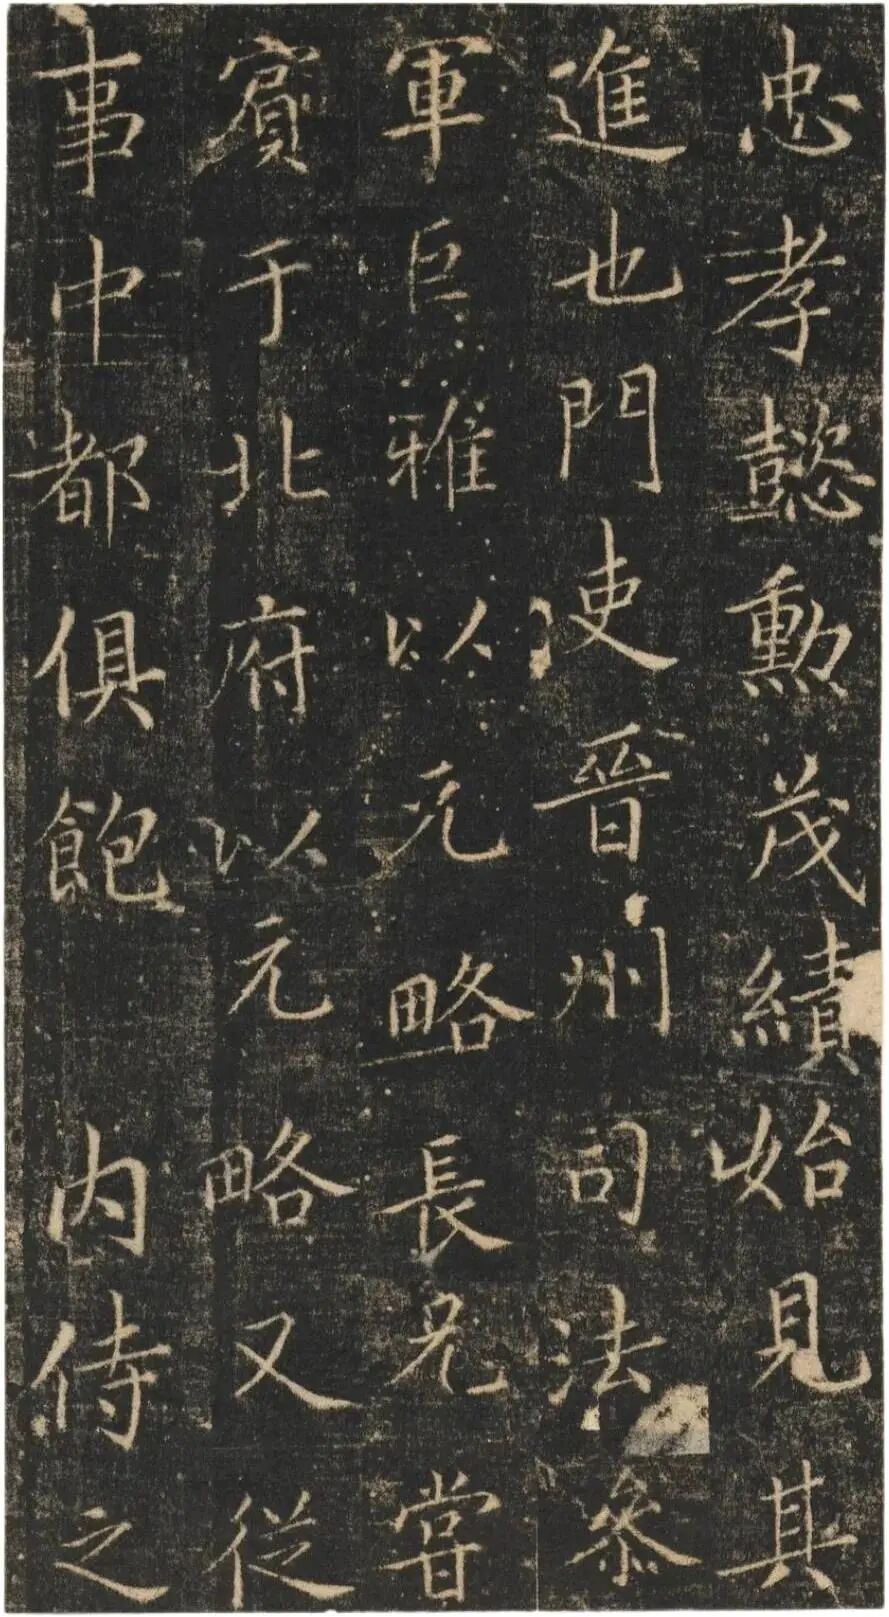 忠孝懿勳茂績始見其
進也門吏晉州司法叅
軍巨雅以元略長兄嘗
賓于北府以元略又從
事中都俱飽内侍之